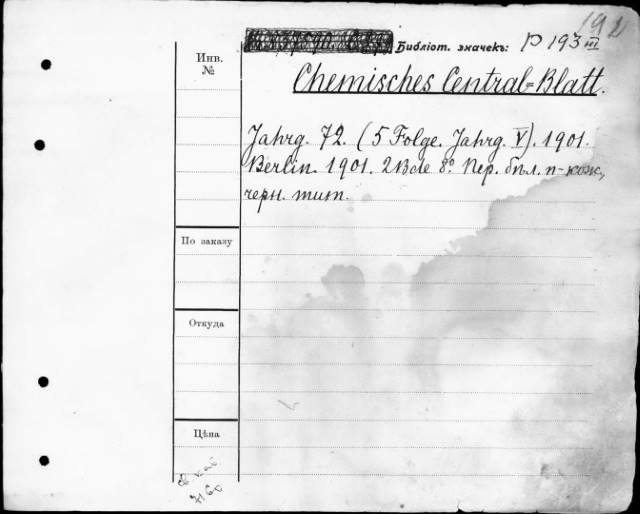 192
Библіот. значекъ: P 193 III
Инв. №
Chemisches Central=Blatt.
Jahrg. 72. (5 Folge. Jahrg. V). 1901.
Berlin. 1901. 2 Bde 8º. Пер. бѣл. п-кож,
черн. тит.
По заказу
Откуда
Цѣна